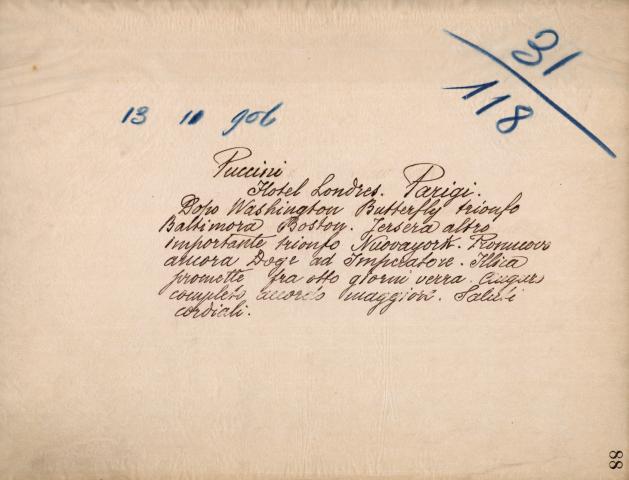 31
118
13 11 906
Puccini
Hotel Londres. Parigi.
Dopo Washington Butterfly trionfo
Baltimora Boston. Jersera altro
importante trionfo Nuovayork.
ancora Doge ad Imperatore. Illica
promette fra otto giorni verrà. Auguro
completo accordo maggiori. Saluti
cordiali.
88